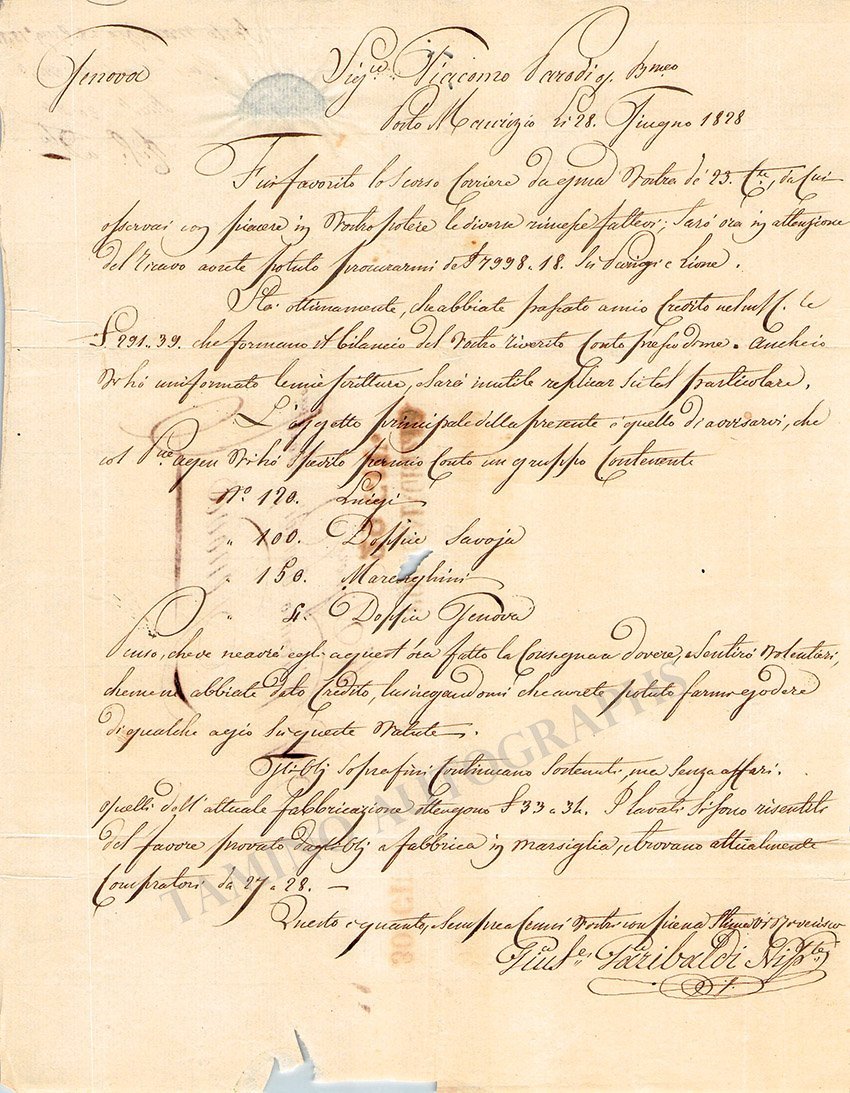 Genova Sig.r Giacomo Parodi q. Bmeo
Porto Maurizio Li 28. Giugno 1828
Fui favorito lo scorso Corriere da gma Vostra de' 23. Cte, da Cui
osservai con piacere in Vostro potere le diverse rimesse fattevi; Sarò ora in attenzione
del ricavo avrete potuto procurarmi de £ 7998.18. Su Parigi e Lione.
Sta ottimamente, che abbiate passato a mio Credito nel
£ 291.39. che formano il bilancio del Vostro riverito Conto. Anch'io
vi hò uniformato le mie scritture, e Sarà inutile replicar Su tal particolare.
L'oggetto principale della presente è quello di avvisarvi, che
col vi hò Spedito per mio Conto un gruppo Contenente
N.o 120. Luigi
" 100. Doppie Savoja
" 150. Marenghini
" 4. Doppia Genova
Penso, che ve ne avrà egli a quest'ora fatto la Consegna a dovere, e Sentirò Volentieri,
che me ne abbiate dato Credito, lusingandomi che avrete potuto farmi godere
di qualche agio Su queste Valute.
Gli Olj Soprafini Continuano Sostenuti, ma Senza affari.
quelli dell'attuale fabbricazione ottengono £ 33 a 34. I lavati Si sono risentiti
del favore provato dagli Olj a fabbrica in Marsiglia, e trovano attualmente
Compratori da 27 a 28. —
Questo è quanto, e Sempre a Cenni Vostri con piena Stima Vi riverisco
Giuse Garibaldi
TAMINO AUTOGRAPHS